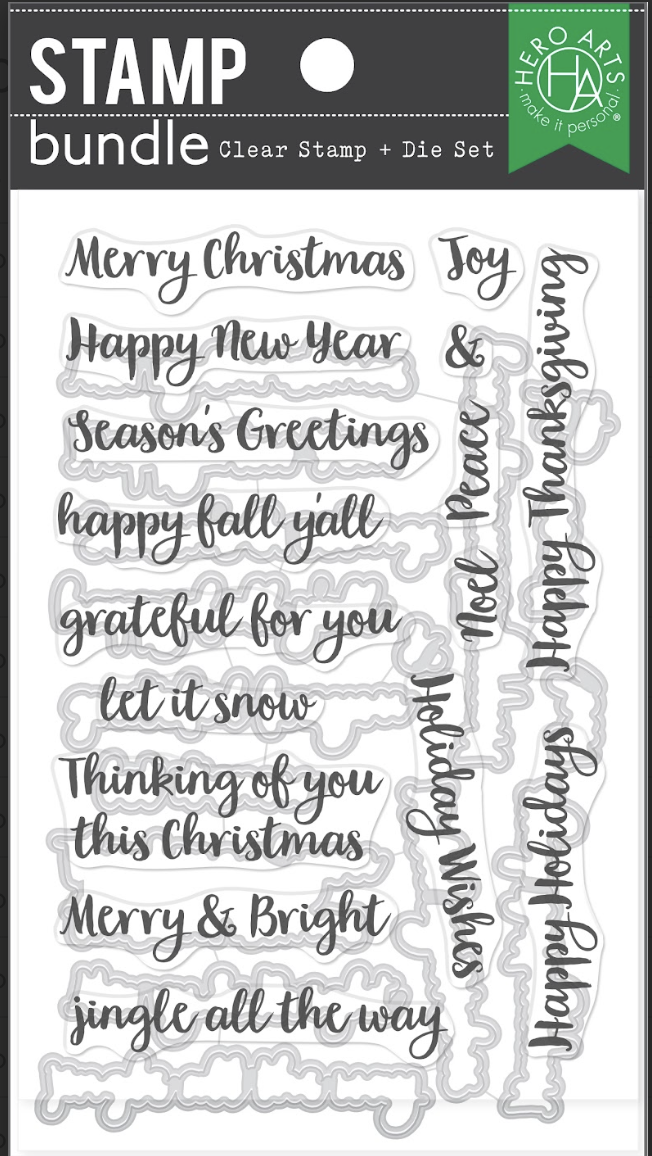 STAMP
bundle Clear Stamp + Die Set
HERO ARTS
HA
make it personal ®
Merry Christmas
Joy
Happy New Year
&
Season's Greetings
Peace
Happy Thanksgiving
happy fall y'all
Noel
grateful for you
let it snow
Holiday Wishes
Thinking of you
this Christmas
Happy Holidays
Merry & Bright
jingle all the way